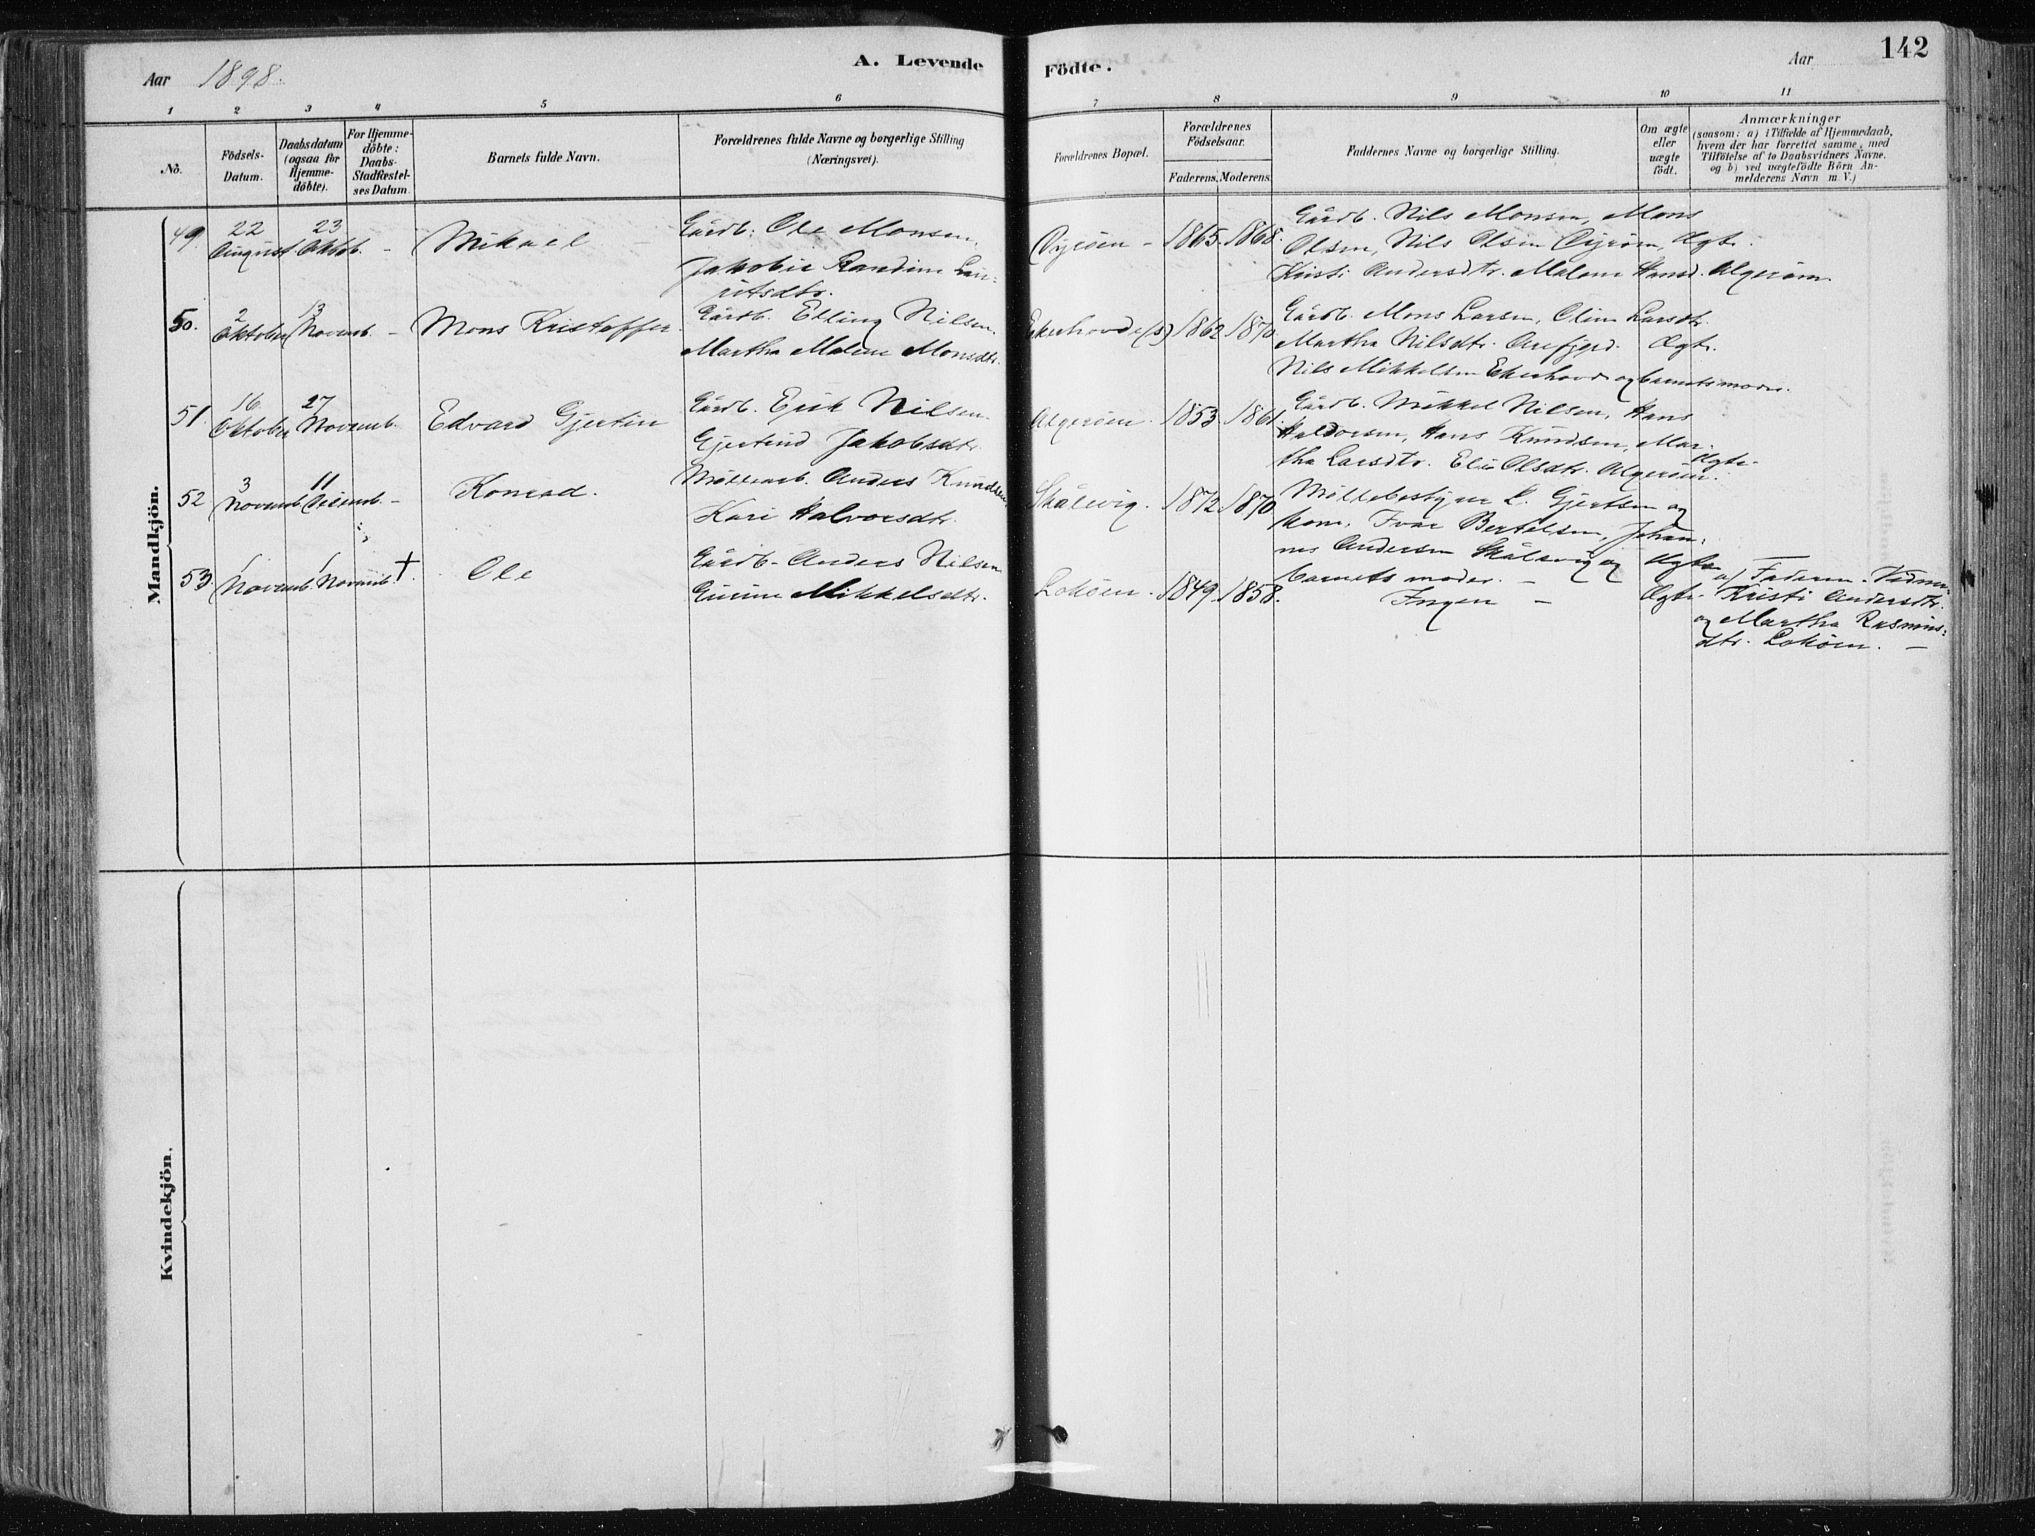 Aar 1898.
A. Levende
Födte.
Aar
142
1 2 3 4 5 6 7 8 9 10 11
No.
Födsels-
Datum.
Daabsdatum
(ogsaa for
Hjemme-
döbte).
For Hjemme-
döbte:
Daabs-
Stadfæstel-
ses Datum.
Barnets fulde Navn.
Forældrenes fulde Navne og borgerlige Stilling
(Næringsvei).
Forældrenes Bopæl.
Forældrenes
Födselsaar.
Faderens. Moderens.
Faddernes Navne og borgerlige Stilling.
Om ægte
eller
uægte
födt.
Anmærkninger
(saasom: a) i Tilfælde af Hjemmedaab,
hvem der har forrettet samme, med
Tilföielse af to Daabsvidners Navne.
og b) ved uægtefödte Börn An-
melderens Navn m. V.)
Mandkjön.
49. 22 August 23 Oktob. - Mikael - Gårdb. Ole Monsen,
Jakobie Randine Lau-
ritsdtr.
Øyrøen - 1865. 1868.
Gårdb. Nils Monsen, Mons
Olsen, Nils Olsen Øyrøen, Ægte.
Kristi Andersdtr. Malene Hansd. Algerøen.
50. 2 Oktober 13 Novemb. - Mons Kristoffer. Gårdb. Elling Nilsen.
Martha Malene Monsdtr.
Ekerhovde (s) 1862. 1870.
Gårdb. Mons Larsen, Oline Larsdtr.
Martha Nilsdtr. Arefjord. Ægte.
Nils Mikkelsen Ekerhovde og barnets moder.
51. 16 Oktober 27 Novemb. Edvard Gjertin Gårdb. Erik Nilsen.
Gjertrud Jakobsdtr.
Algerøen. 1853. 1861.
Gårdb. Mikkel Nilsen, Hans
Haldorsen, Hans Knudsen, Mar-
tha Larsdtr. Elis Olsdtr. Algerøen. Ægte.
52 3 Novemb. 11 Desemb. - Konrad. Møllearb. Anders Knudsen,
Kari Halvorsdtr.
Skålevig. 1872. 1870
Møllebestyrer L. Gjertsen og
kone, Ivar Bertelsen, Johan-
nes Andersen Skålevig og Ægte
barnets moder. -
53. 1 Novemb. 1 Novemb. †. Ole Gårdb. Anders Nilsen
Gurine Mikkelsdtr.
Lokøen. 1849. 1858.
Ingen - Ægte.
a) Faderen. Vidner
Kristi Andersdtr.
og Martha Rasmus-
dtr. Lokøen. -
Kvindekjön.